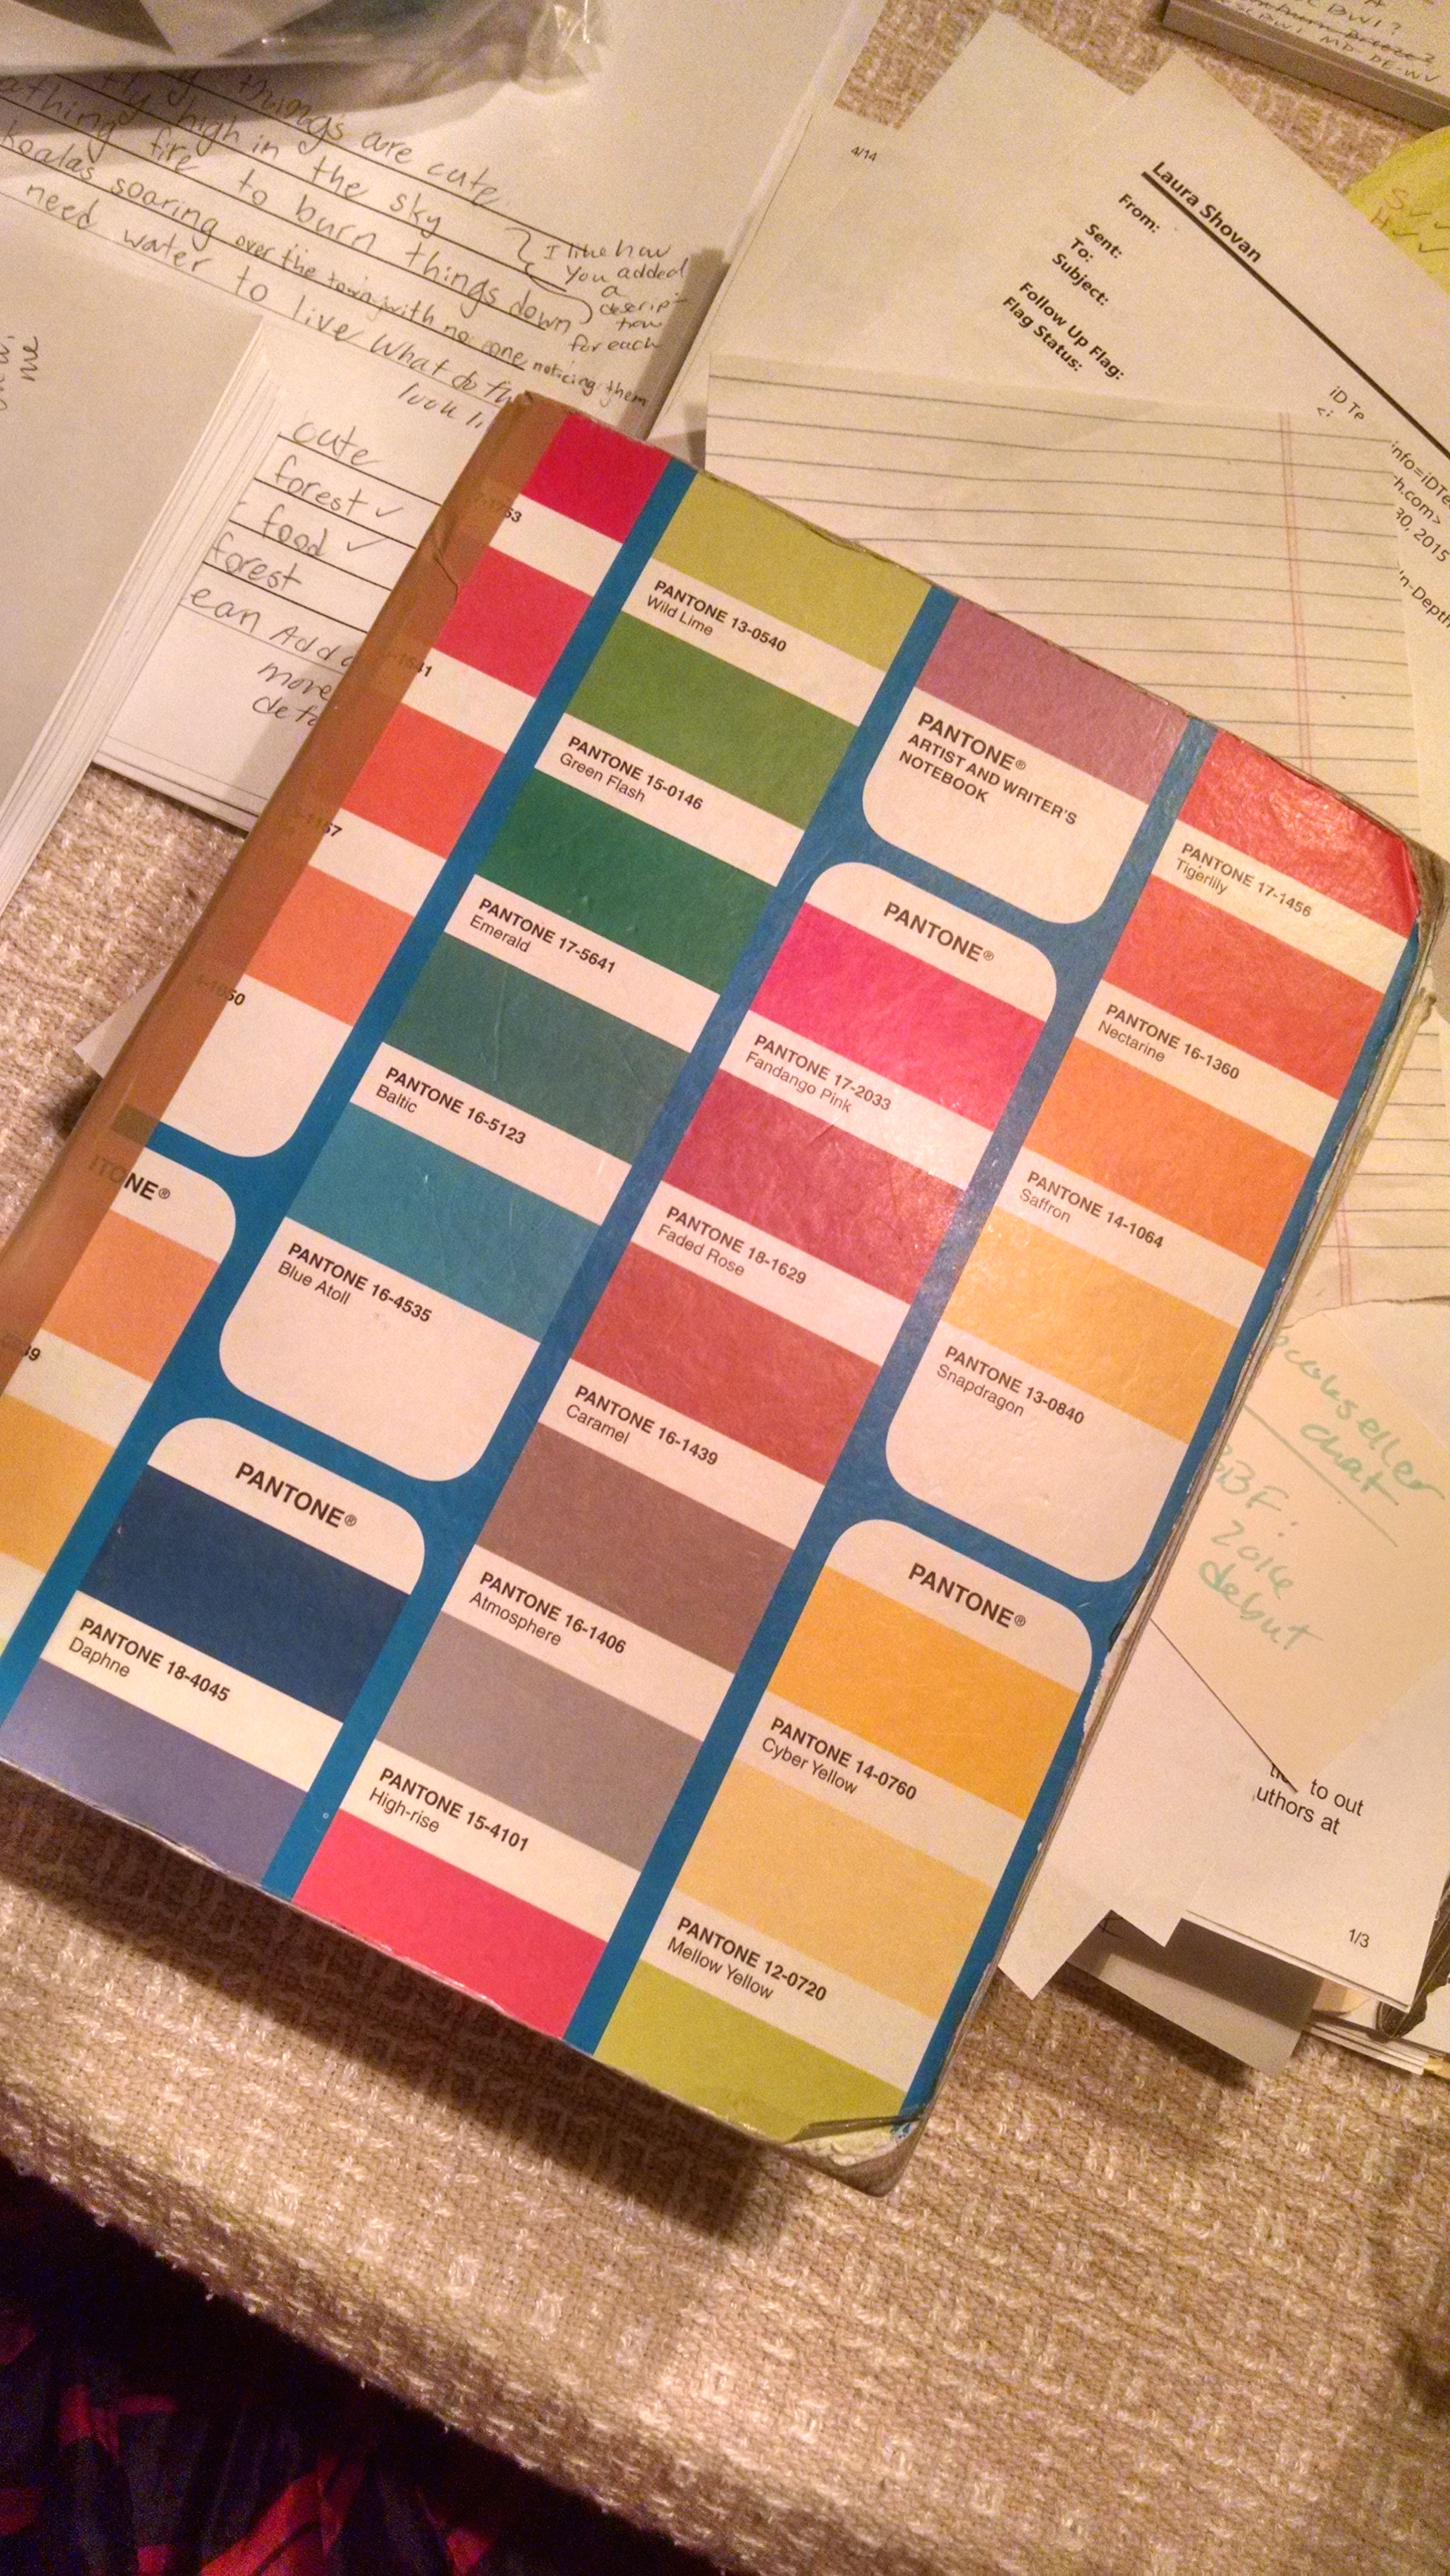 things are cute
fly high in the sky
fire to burn things down
koalas soaring over the town with no one noticing them
need water to live What do
look
I like how
you added
a
descrip-
tion
for each
me
cute
forest ✓
food ✓
forest
ean Add a
more
4/14
Laura Shovan
From:
Sent:
To:
Subject:
Follow Up Flag:
Flag Status:
iD Te
info=iDTe
h.com>
30, 2015
In-Depth
PANTONE 13-0540
Wild Lime
PANTONE 15-0146
Green Flash
PANTONE 17-5641
Emerald
PANTONE 16-5123
Baltic
PANTONE 16-4535
Blue Atoll
PANTONE®
PANTONE 18-4045
Daphne
PANTONE®
ARTIST AND WRITER'S
NOTEBOOK
PANTONE®
PANTONE 17-2033
Fandango Pink
PANTONE 18-1629
Faded Rose
PANTONE 16-1439
Caramel
PANTONE 16-1406
Atmosphere
PANTONE 15-4101
High-rise
PANTONE 17-1456
Tigerlily
PANTONE 16-1360
Nectarine
PANTONE 14-1064
Saffron
PANTONE 13-0840
Snapdragon
PANTONE®
PANTONE 14-0760
Cyber Yellow
PANTONE 12-0720
Mellow Yellow
TONE®
chat
debut
to out
uthors at
1/3